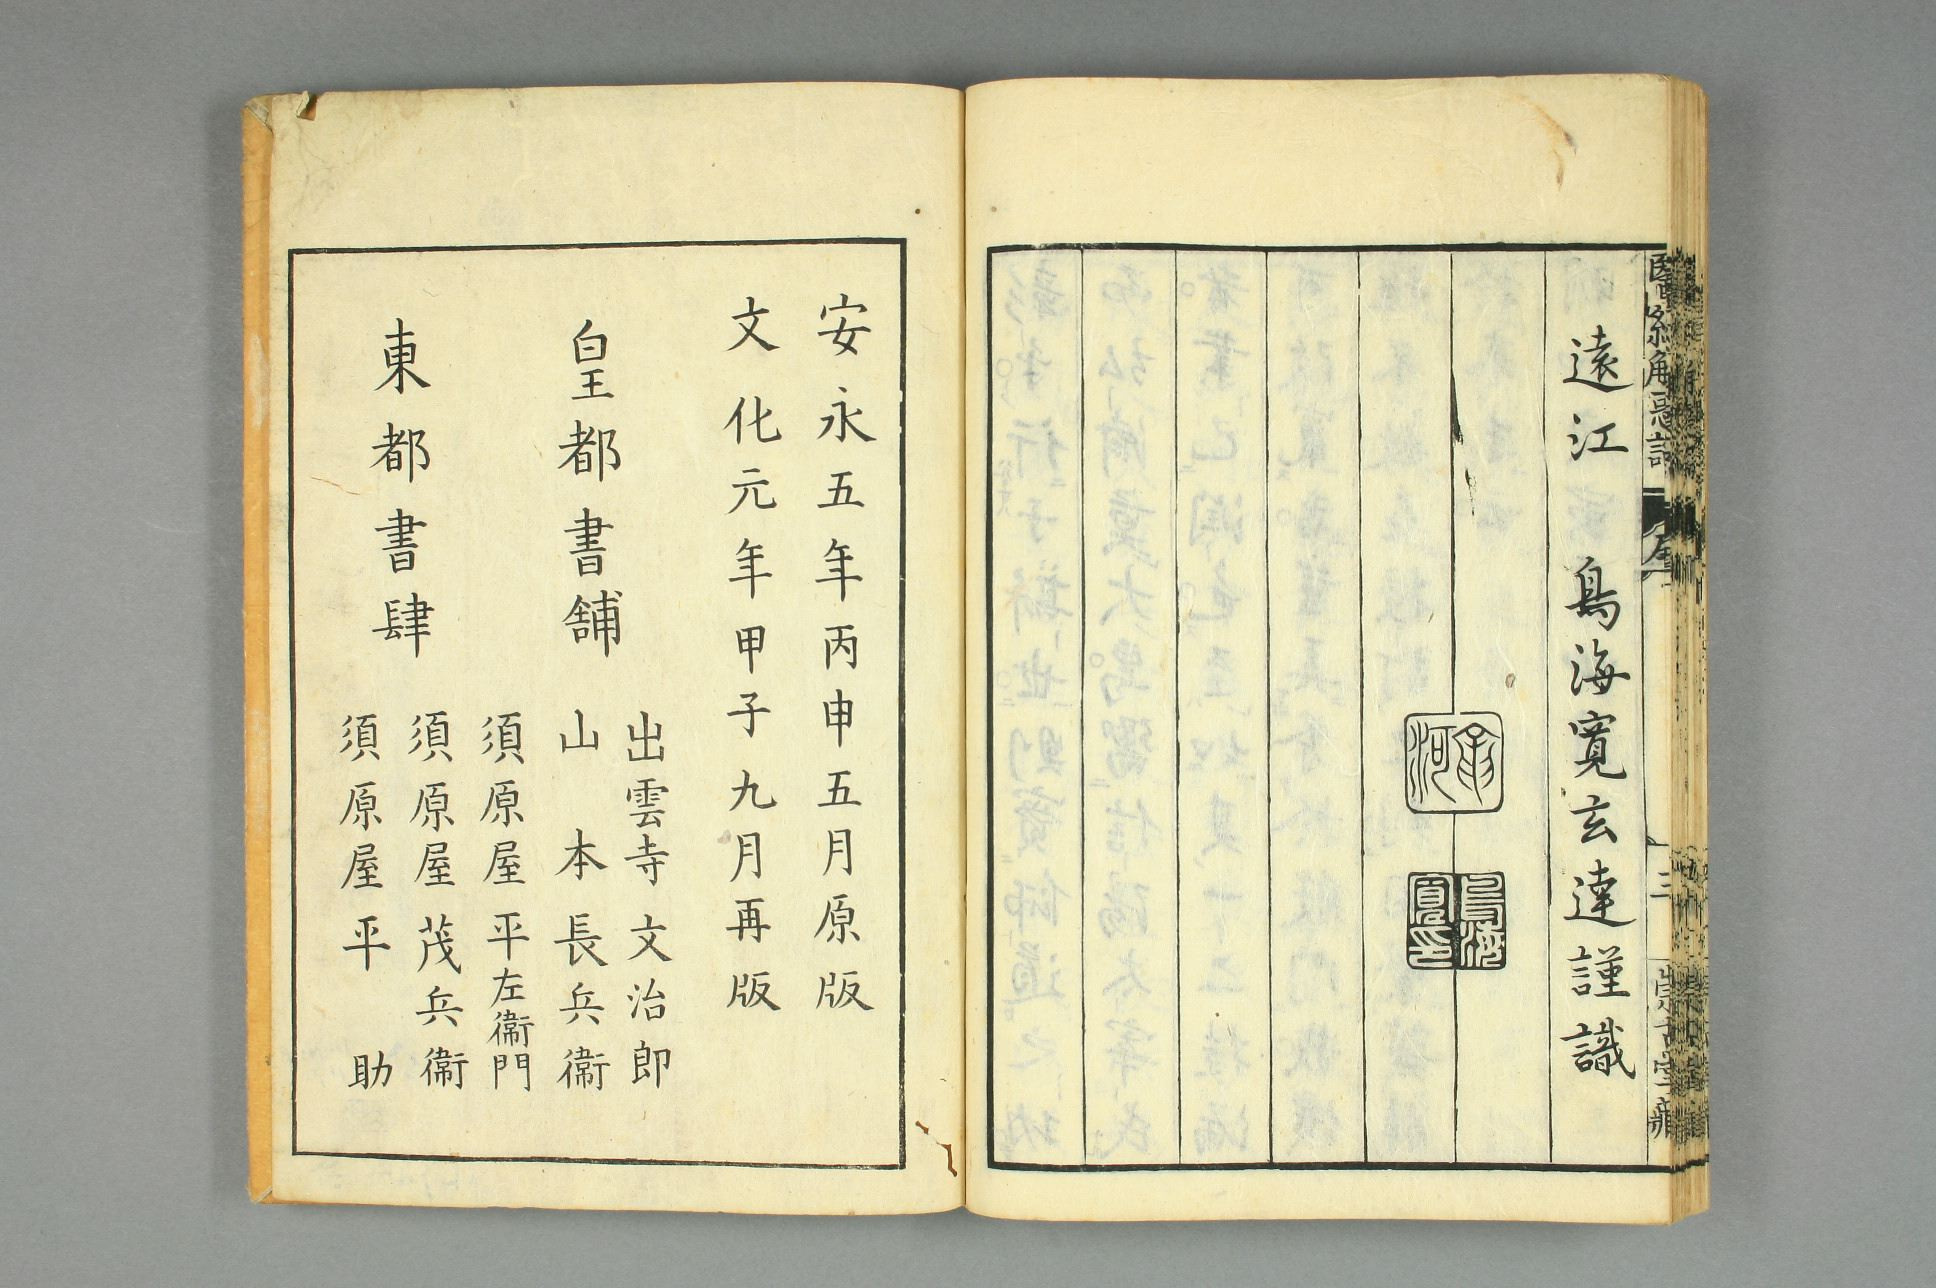 遠江 鳥海寛玄達謹識
三
安永五年丙申五月原版
文化元年甲子九月再版
皇都書舗
出雲寺文治郎
山本長兵衞
東都書肆
須原屋平左衞門
須原屋茂兵衞
須原屋平助